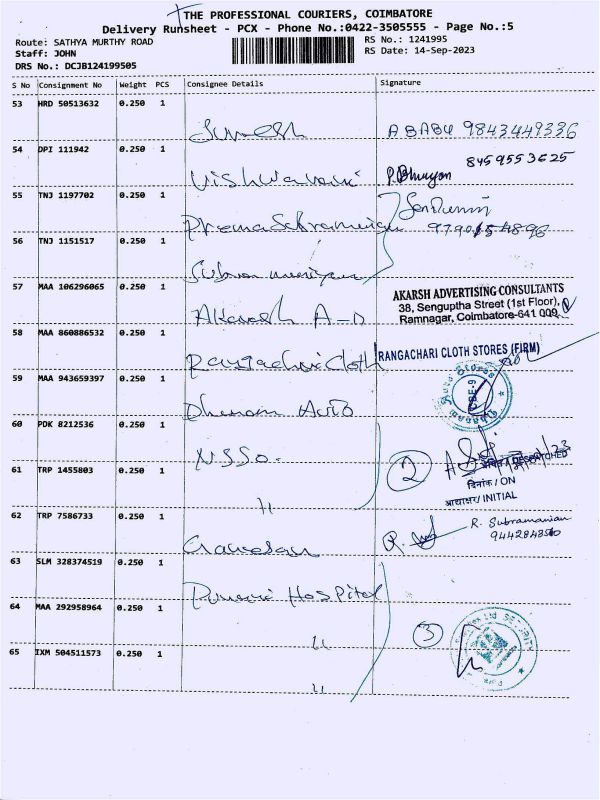 THE PROFESSIONAL COURIERS, COIMBATORE
Delivery Runsheet - PCX - Phone No.:0422-3505555 - Page No.:5
Route: SATHYA MURTHY ROAD RS No.: 1241995
Staff: JOHN RS Date: 14-Sep-2023
DRS No.: DCJB124199505
S No Consignment No Weight PCS Consignee Details Signature
53 HRD 50513632 0.250 1
Suresh A BABU 9843449336
54 DPI 111942 0.250 1 8459553625
Vishwa
55 TNJ 1197702 0.250 1
Prema
56 TNJ 1151517 0.250 1
57 MAA 106296065 0.250 1 AKARSH ADVERTISING CONSULTANTS
38, Senguptha Street (1st Floor),
Akarash A-D Ramnagar, Coimbatore-641 009.
58 MAA 860886532 0.250 1 RANGACHARI CLOTH STORES (FIRM)
Rangachari Cloth
59 MAA 943659397 0.250 1 CBE-9
Dhanam Auto
60 PDK 8212536 0.250 1
NSSO.
61 TRP 1455803 0.250 1 2
दिनांक / ON
" आद्याक्षर/ INITIAL
62 TRP 7586733 0.250 1 R. Subramanian
Ganesan
63 SLM 328374519 0.250 1
Hospital
64 MAA 292958964 0.250 1 3 SECURITY
"
65 IXM 504511573 0.250 1
"